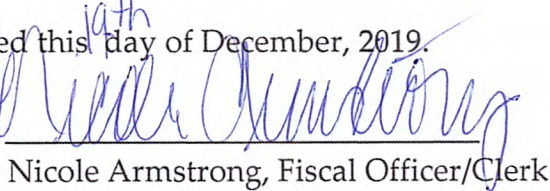 ed this 19th day of December, 2019.
Nicole Armstrong
Nicole Armstrong, Fiscal Officer/Clerk